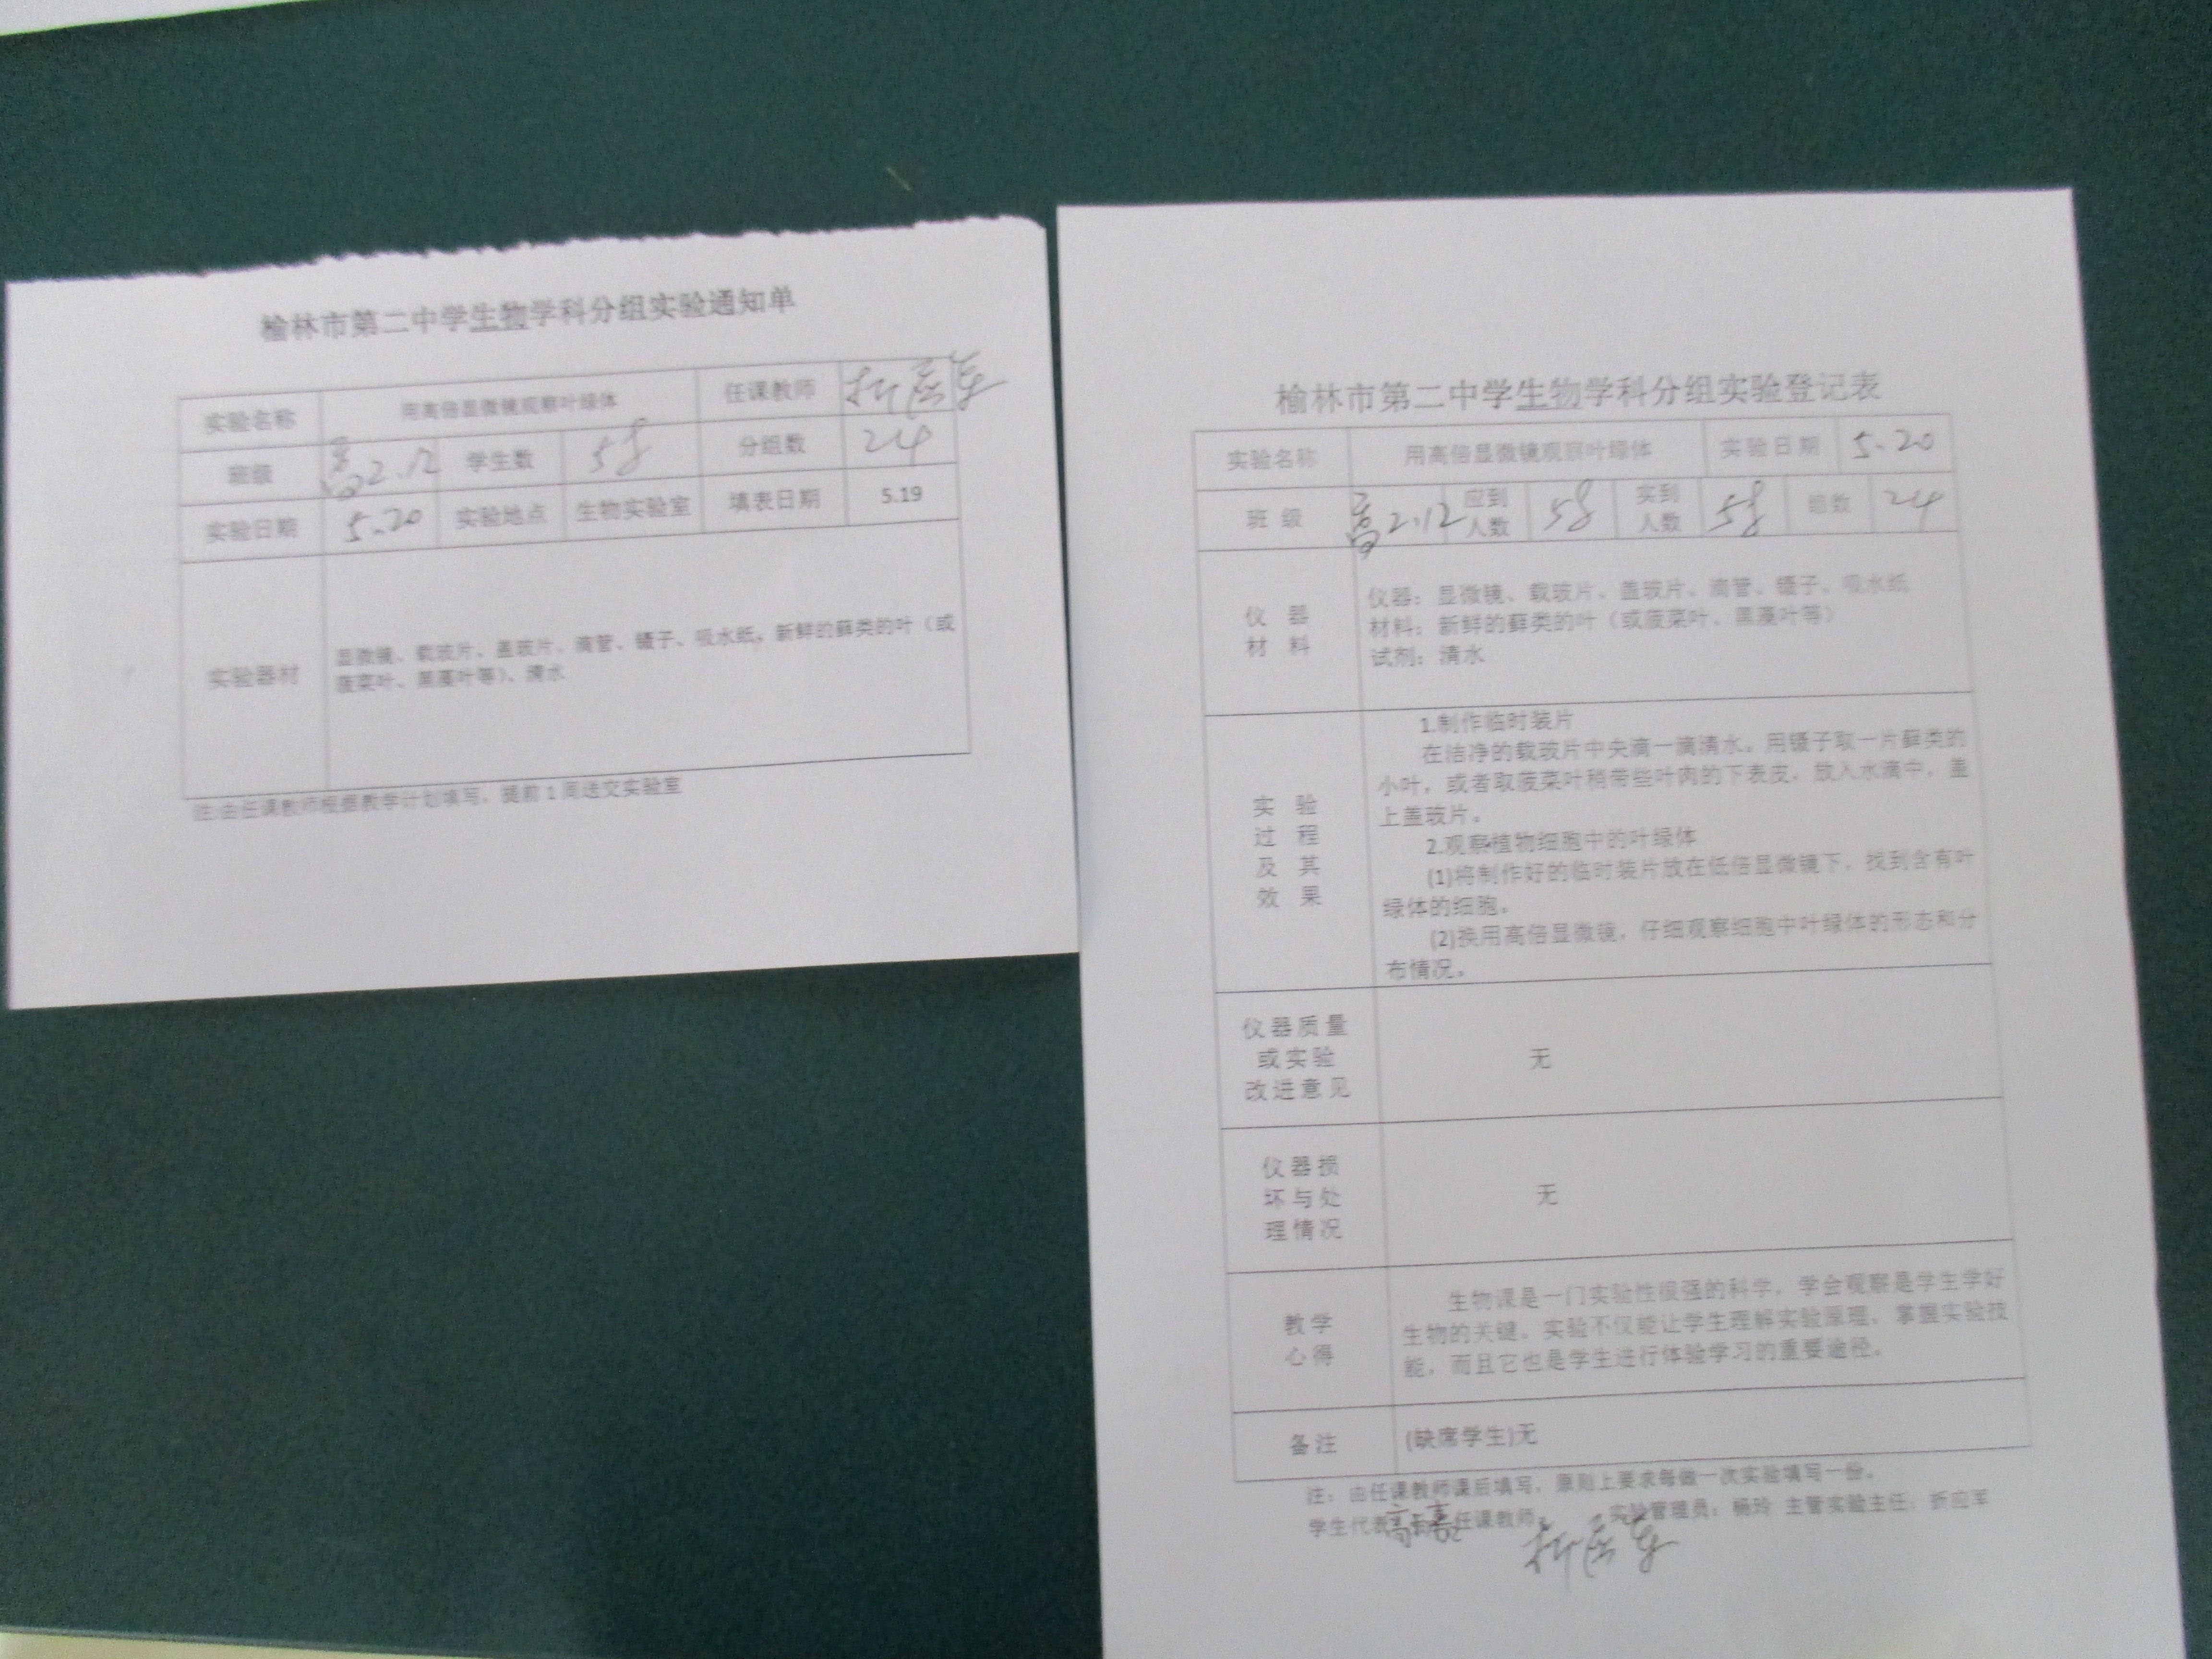 榆林市第二中学生物学科分组实验通知单
实验名称 用高倍显微镜观察叶绿体 任课教师 折应军
班级 高2.12 学生数 58 分组数 24
实验日期 5.20 实验地点 生物实验室 填表日期 5.19
实验器材
显微镜、载玻片、盖玻片、滴管、镊子、吸水纸，新鲜的藓类的叶（或
菠菜叶、黑藻叶等）、清水
注:由任课教师根据教学计划填写，提前1周送交实验室
榆林市第二中学生物学科分组实验登记表
实验名称 用高倍显微镜观察叶绿体 实验日期 5.20
班 级 高2.12 应到人数 58 实到人数 58 组数 24
仪 器
材 料
仪器：显微镜、载玻片、盖玻片、滴管、镊子、吸水纸
材料：新鲜的藓类的叶（或菠菜叶、黑藻叶等）
试剂：清水
实 验
过 程
及 其
效 果
1.制作临时装片
在洁净的载玻片中央滴一滴清水，用镊子取一片藓类的
小叶，或者取菠菜叶稍带些叶肉的下表皮，放入水滴中，盖
上盖玻片。
2.观察植物细胞中的叶绿体
(1)将制作好的临时装片放在低倍显微镜下，找到含有叶
绿体的细胞。
(2)换用高倍显微镜，仔细观察细胞中叶绿体的形态和分
布情况。
仪器质量
或实验
改进意见
无
仪器损
坏与处
理情况
无
教学
心得
生物课是一门实验性很强的科学，学会观察是学生学好
生物的关键，实验不仅能让学生理解实验原理、掌握实验技
能，而且它也是学生进行体验学习的重要途径。
备注 (缺席学生)无
注：由任课教师课后填写，原则上要求每做一次实验填写一份。
学生代表 任课教师： 折应军 实验管理员：杨玲 主管实验主任：折应军